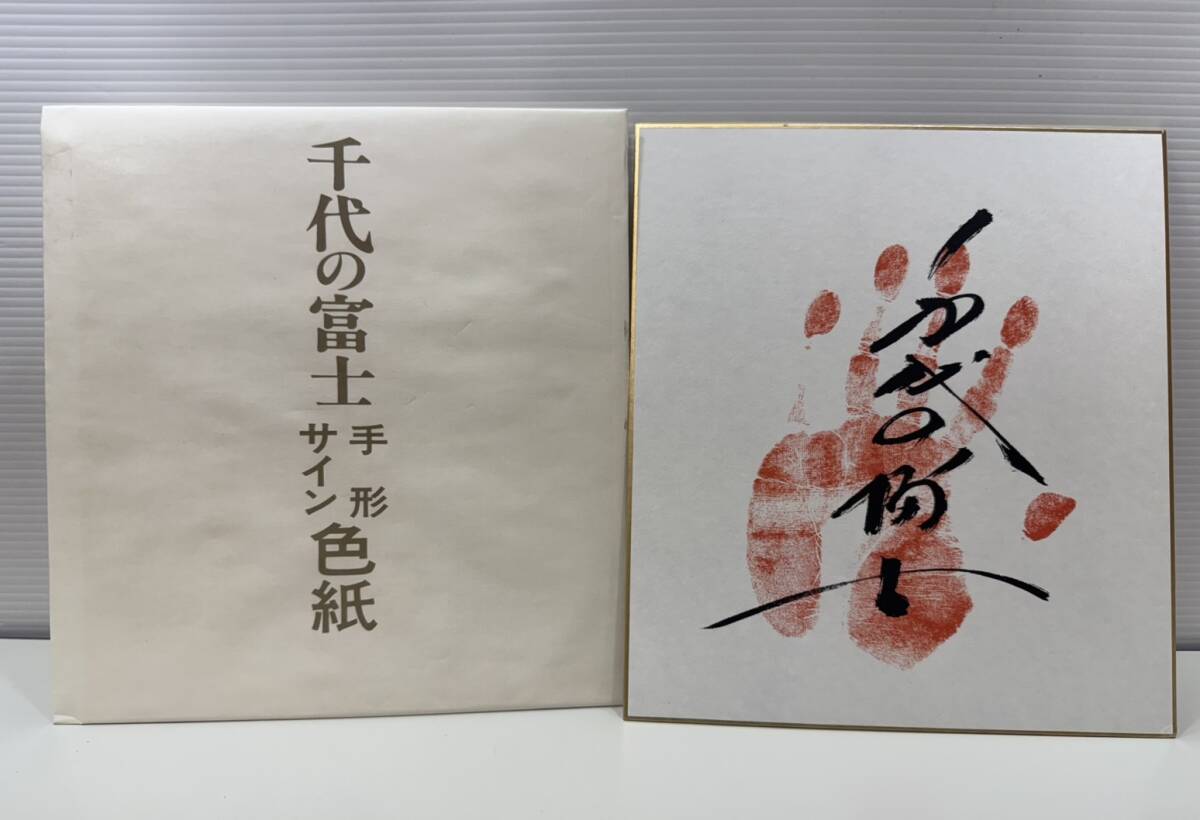 千代の富士
手形
サイン
色紙
千代の富士